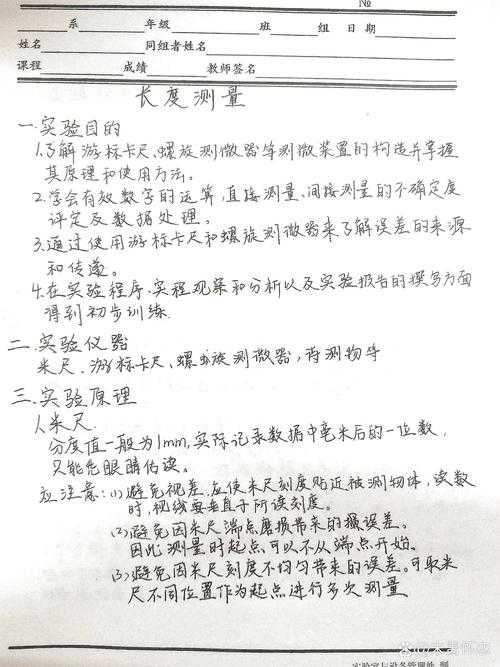 №
系 年级 班 组 日期
姓名 同组者姓名
课程 成绩 教师签名
长度测量
一.实验目的
1.了解游标卡尺、螺旋测微器等测微装置的构造并掌握
其原理和使用方法。
2.学会有效数字的运算,直接测量、间接测量的不确定度
评定及数据处理。
3.通过使用游标卡尺和螺旋测微器来了解误差的来源
和传递。
4.在实验程序、实程观察和分析以及实验报告的撰写方面
得到初步训练.
二.实验仪器
米尺.游标卡尺、螺旋测微器,待测物等
三.实验原理
1.米尺
分度值一般为1mm,实际记录数据中毫米后的一位数,
只能凭眼睛估读。
应注意:(1)避免视差,应使米尺刻度贴近被测物体,读数
时,视线要垂直于所读刻度。
(2)避免因米尺端点磨损带来的误差。
因此测量时起点可以不从端点开始。
(3)避免因米尺刻度不均匀带来的误差。可取米
尺不同位置作为起点进行多次测量
实验室与设备管理处 制